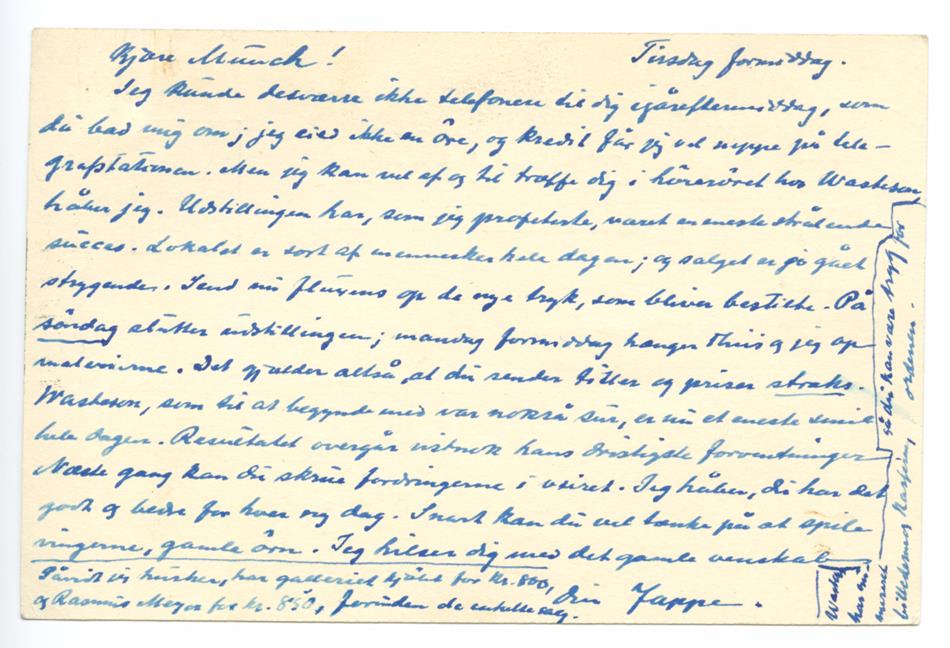 Kjære Munch!
Tirsdag formiddag.
Jeg kunde desværre ikke telefonere til dig igåreftermiddag, som
du bad mig om; jeg eied ikke en öre, og kredit får jeg vel neppe på tele-
grafstationen. Men jeg kan vel af og til træffe dig i hörerøret hos Wasteson,
håber jeg. Udstillingen har, som jeg profeterte, været en eneste strålende
succes. Lokalet er sort af mennesker hele dagen; og salget er jo gået
strygende. Send nu fluxens op de nye tryk, som bliver bestilte. På
söndag slutter udstillingen; mandag formiddag hænger Thiis og jeg op
malerierne. Det gjælder altså, at du sender titler og priser straks.
Wasteson, som til at begynde med var nokså sur, er nu et eneste smil
hele dagen. Resultatet overgår vistnok hans dristigste forventninger.
Næste gang kan du skrue fordringerne i veiret. Jeg håber, du har det
godt og bedre for hver ny dag. Snart kan du vel tænke på at spile
vingerne, gamle örn. Jeg hilser dig med det gamle venskab
Din Jappe.
Såvidt jeg husker, har galleriet kjöbt for kr. 800,
og Rasmus Meyer for kr. 850, foruden de enkelte salg.
har nu
så du kan være tryg for
ordenen.